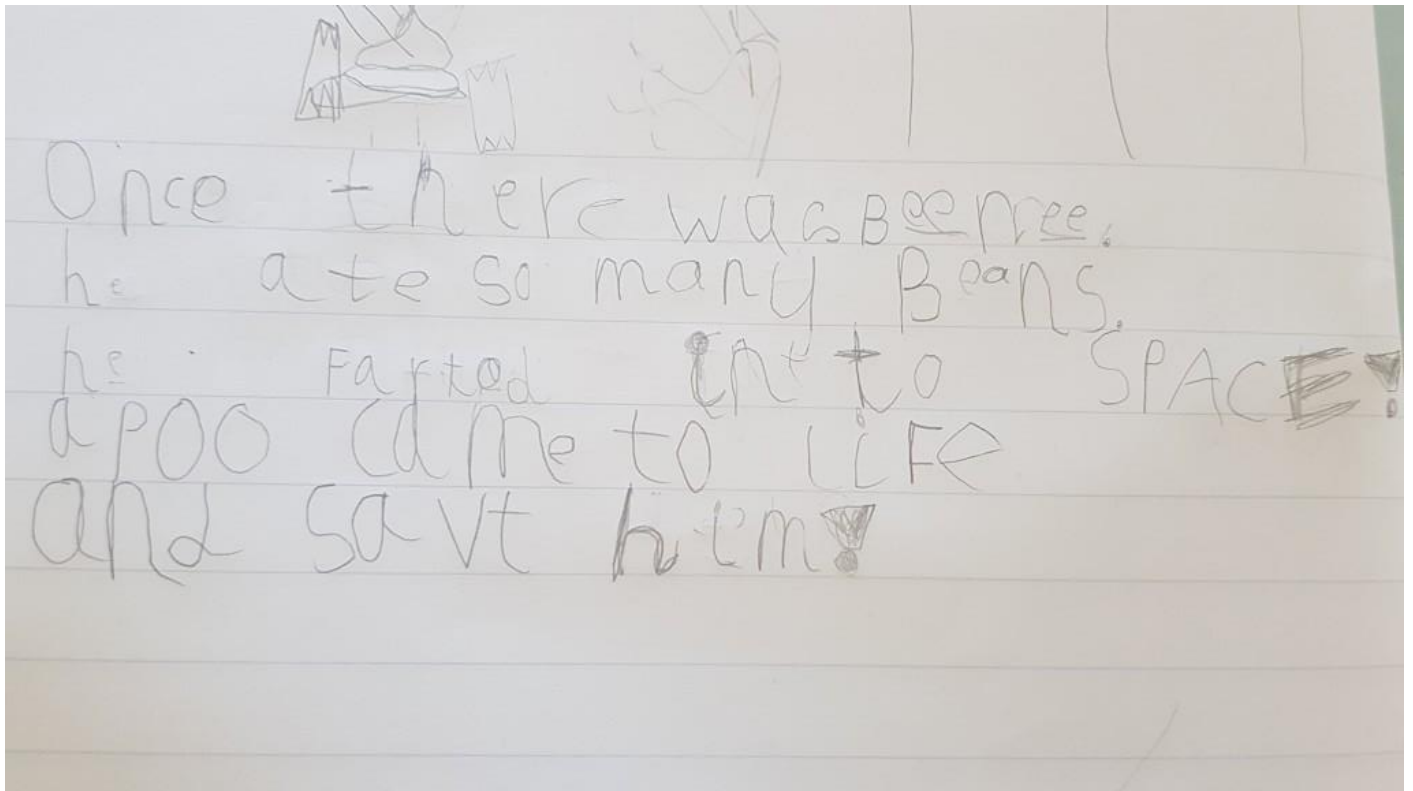 Once there was Beenree.
he ate so many Beans.
he Farted into SPACE!
a poo came to liFe
and savt him!